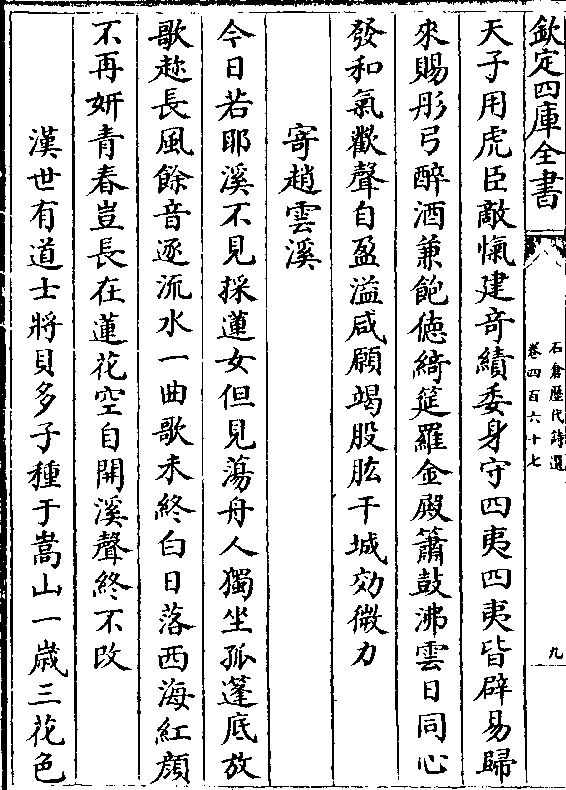 欽定四庫全書
石倉歴代詩選
卷四百六十七
九
天子用虎臣敵愾建竒績委身守四夷四夷皆辟易歸
來賜彤弓醉酒兼飽徳綺筵羅金殿簫鼓沸雲日同心
發和氣歡聲自盈溢咸願竭股肱干城効微力
寄趙雲溪
今日若耶溪不見採蓮女但見蕩舟人獨坐孤蓬底放
歌趂長風餘音逐流水一曲歌未終白日落西海紅顔
不再妍青春豈長在蓮花空自開溪聲終不改
漢世有道士將貝多子種于嵩山一嵗三花色